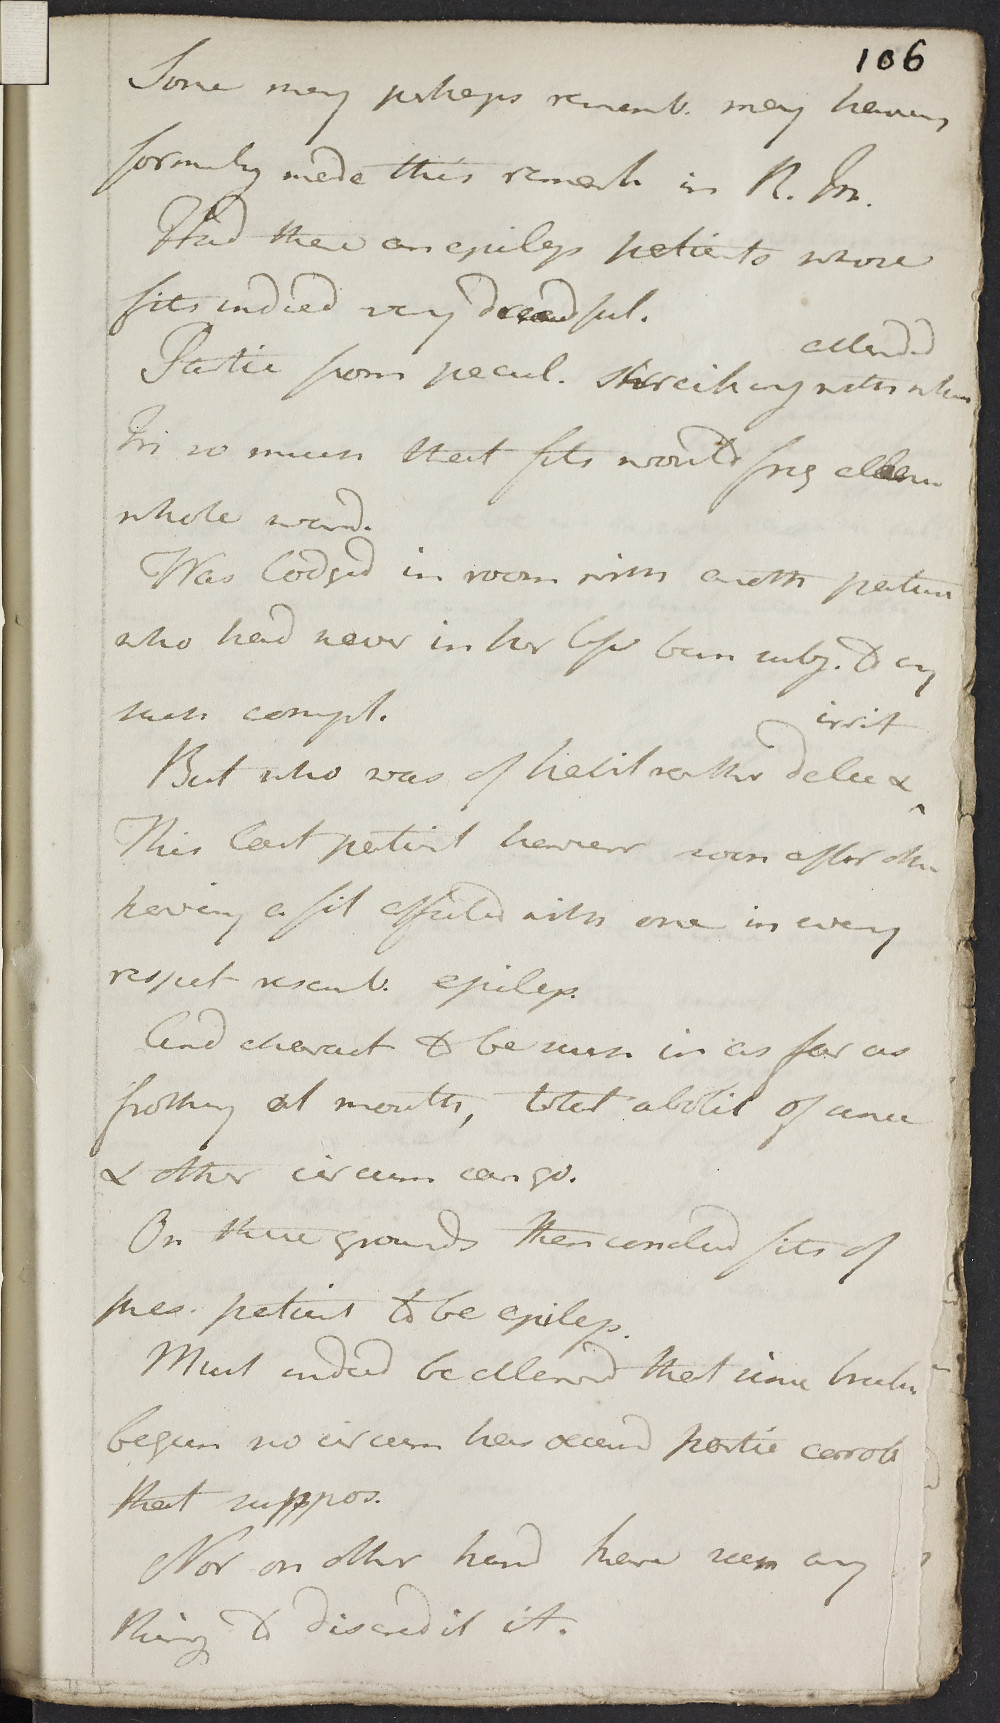 106
Some may perhaps rememb. my having
formerly made this remark in R. Inf.
Had there an epilep patients whose
fits indeed very dreadful.
attended
Partic from pecul. shrieking noise when
In so much that fits would freq alarm
whole ward.
Was lodged in room with anoth patient
who had never in her life been subj. to any
such compl.
irrit
But who was of habit rather delic &
This last patient however soon after other
having a fit affected with one in every
respect resemb. epilep.
And charact to be such in as far as
frothing at mouth, total abolit of sense
& other circum can go.
On these grounds then conclud fits of
pres. patient to be epilep.
Must indeed be allowed that since
begun no circum has occurd partic corrob
that suppos.
Nor on other hand have seen any
thing to discredit it.